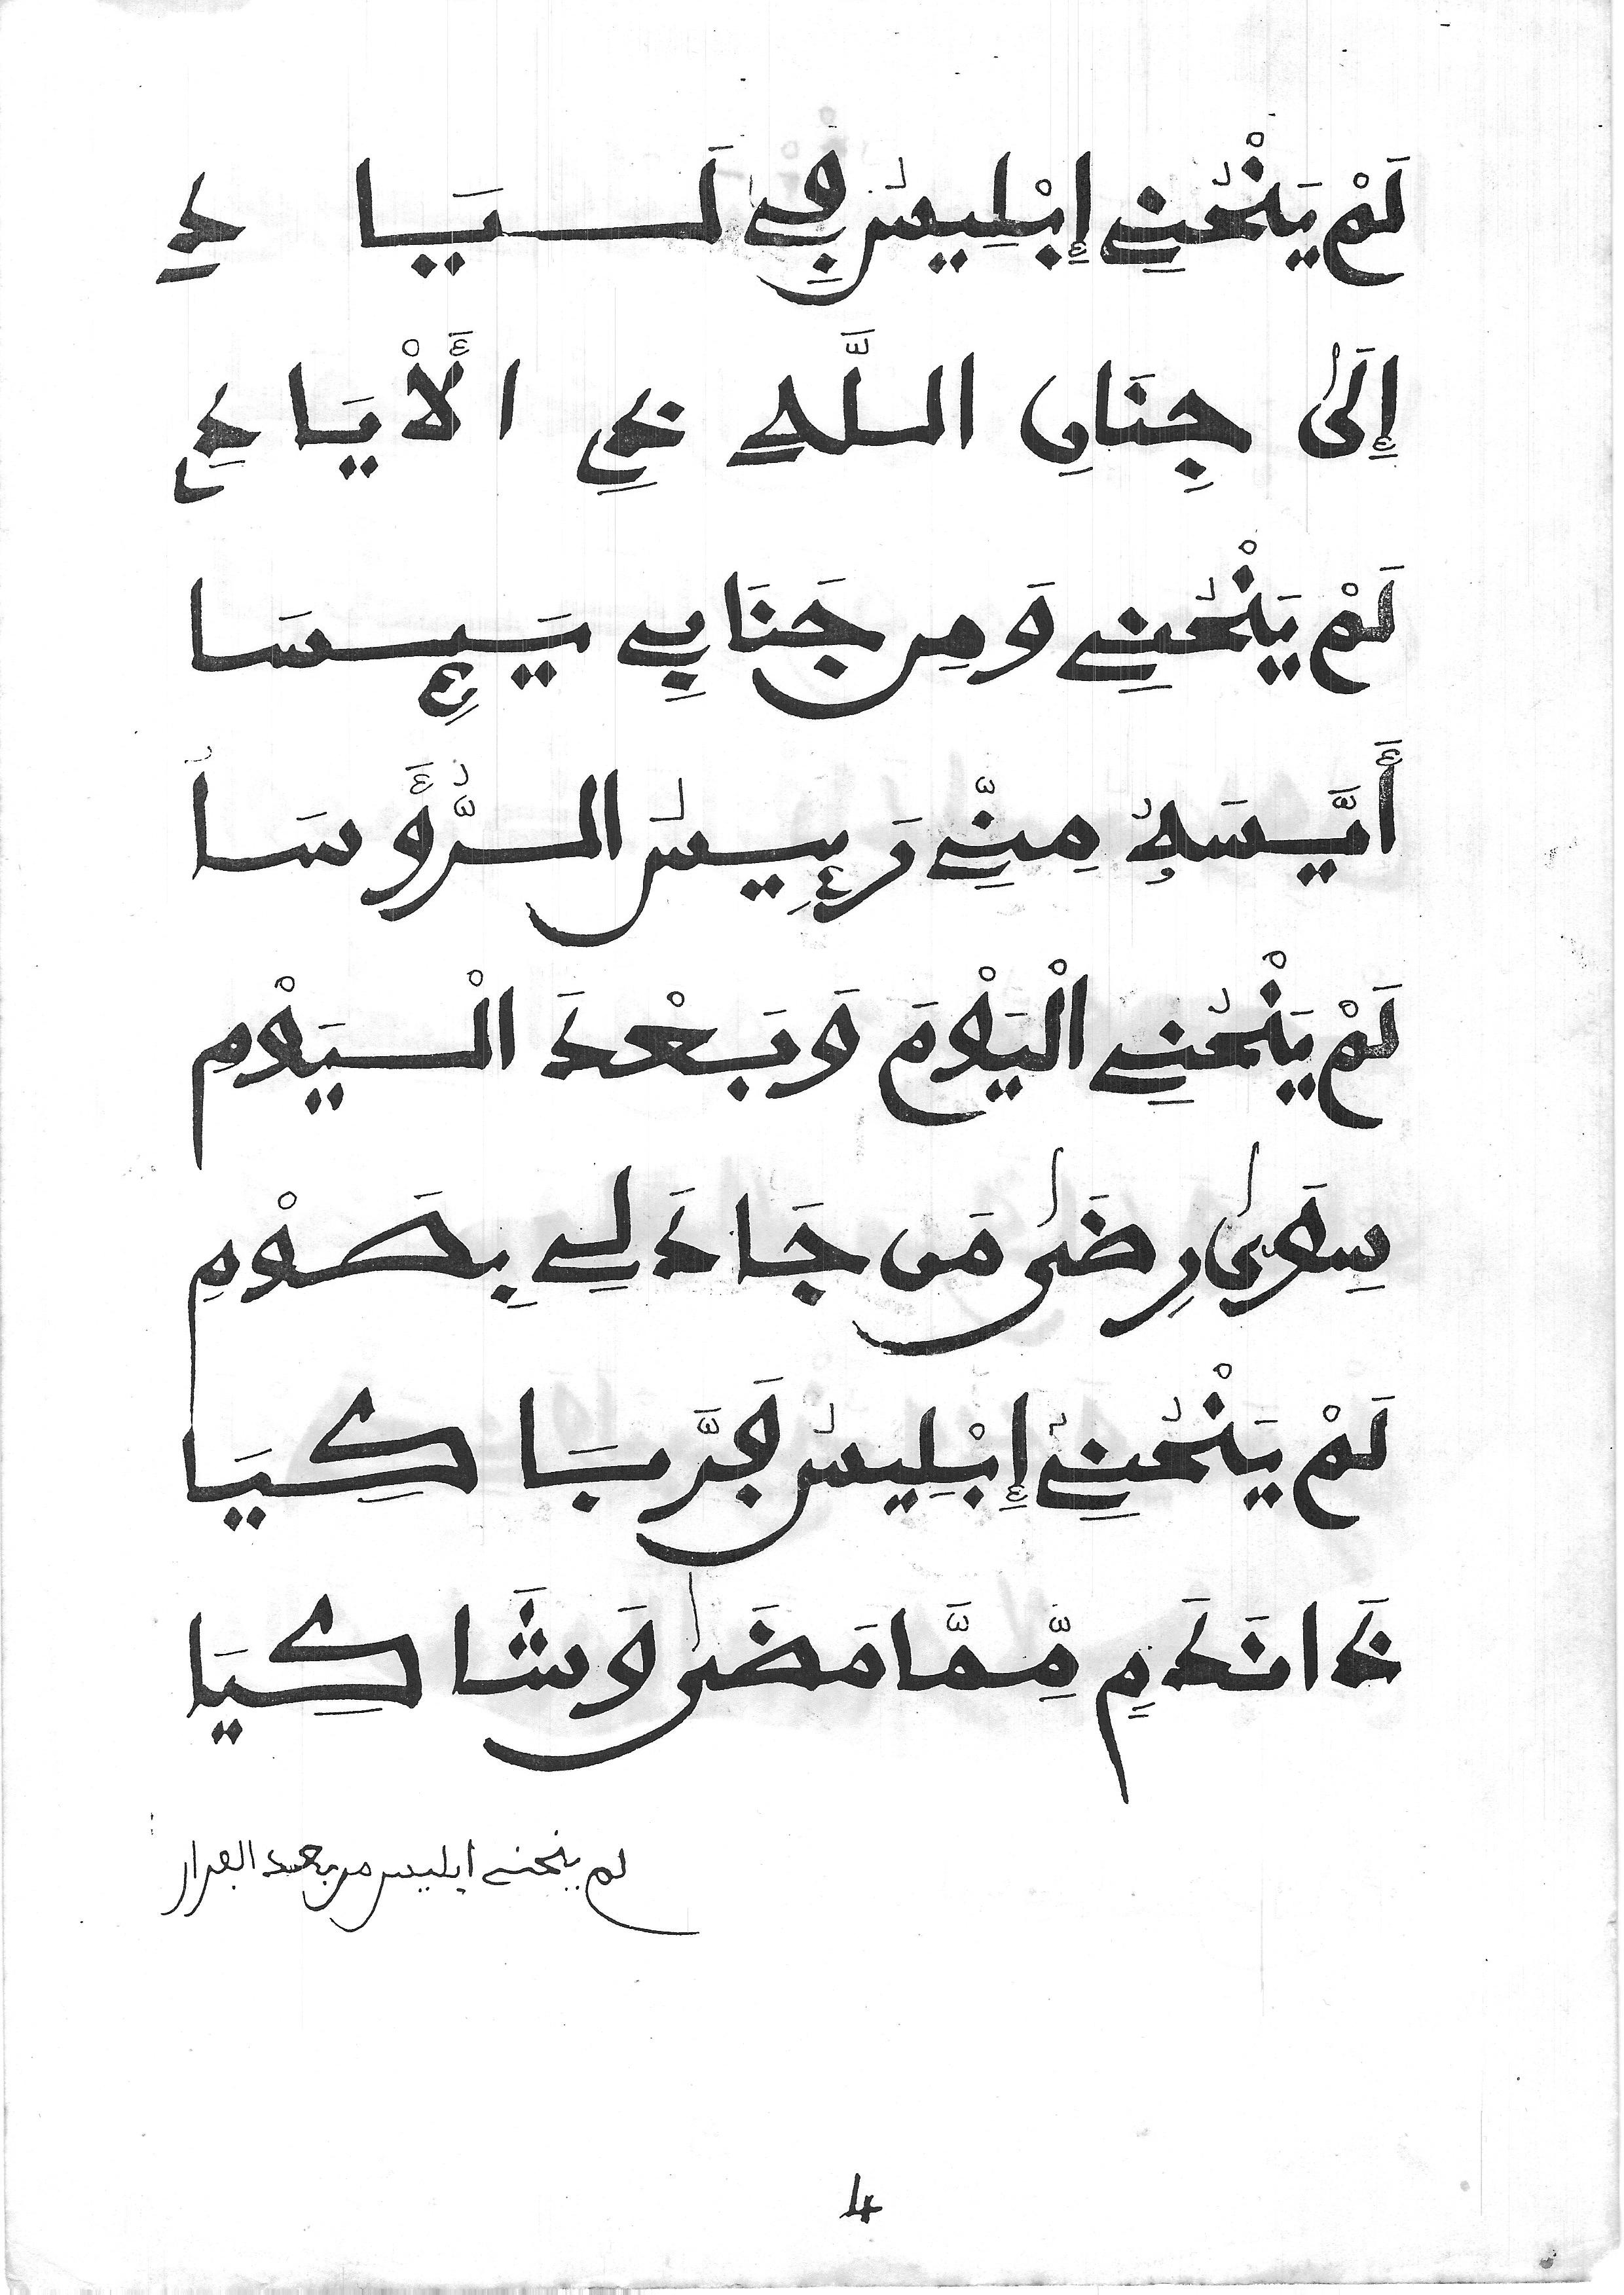 لَمْ يَنْحُنِي إِبْلِيسُ فِي لَيَا دِ
إِلَى جِنَانِ اللَّهِ ذِي الْأَيَادِي
لَمْ يَنْحُنِي وَمِن جَنَابِي يَيِسَا
أَيَّسَهُ مِنِّي رَئِيسُ الرُّؤَسَا
لَمْ يَنْحُنِي الْيَوْمَ وَبَعْدَ الْيَوْمِ
سِوَى رِضَى مَن جَادَ لِي بِصَوْمِ
لَمْ يَنْحُنِي إِبْلِيسُ فَرَّ بَاكِيَا
ذَا نَدَمٍ مِّمَّا مَضَى وَشَاكِيَا
لم ينحني ابليس من بعد الفرار
4